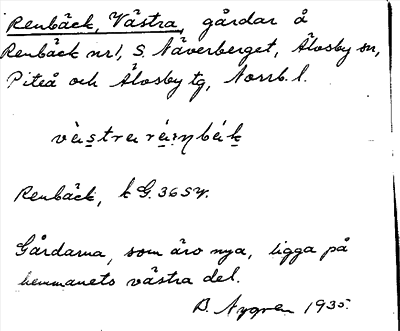 Renbäck, Västra, gårdar å
Renbäck nr 1, S. Näverberget, Älvsby sn,
Piteå och Älvsby tg, Norrb. l.
Renbäck, k G. 36 SV.
Gårdarna, som äro nya, ligga på
hemmanets västra del.
B. Nygren 1935.